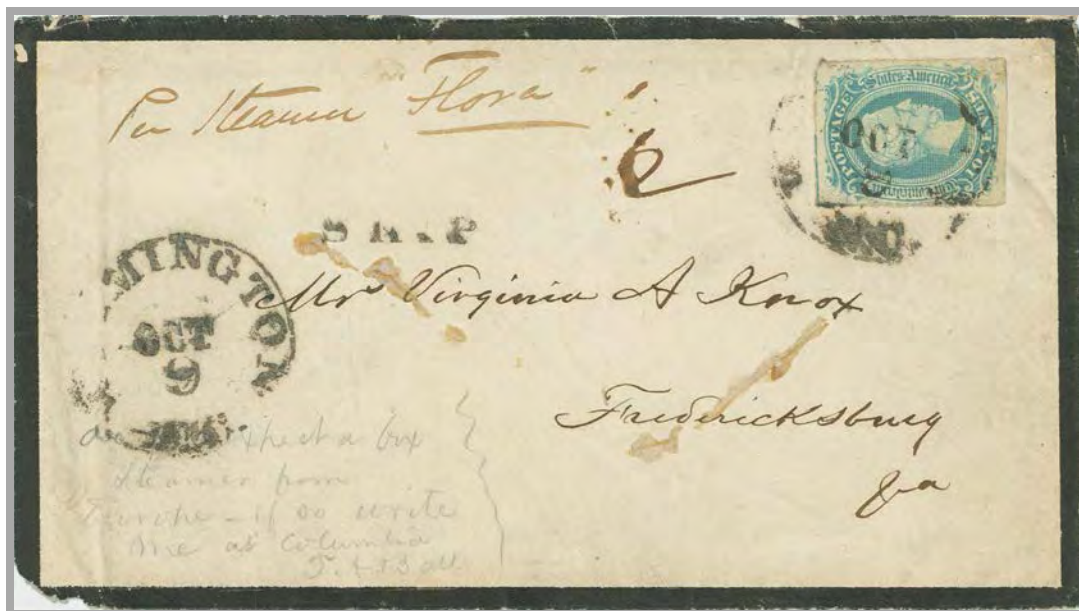 Per Steamer "Flora"
6
POSTAGE
States America
TEN CENTS
OCT
NC
SHIP
MINGTON
OCT
9
Mrs Virginia A Knox
Fredericksburg
Va
expect a box
Steamer from
Europe - if so write
me at Columbia